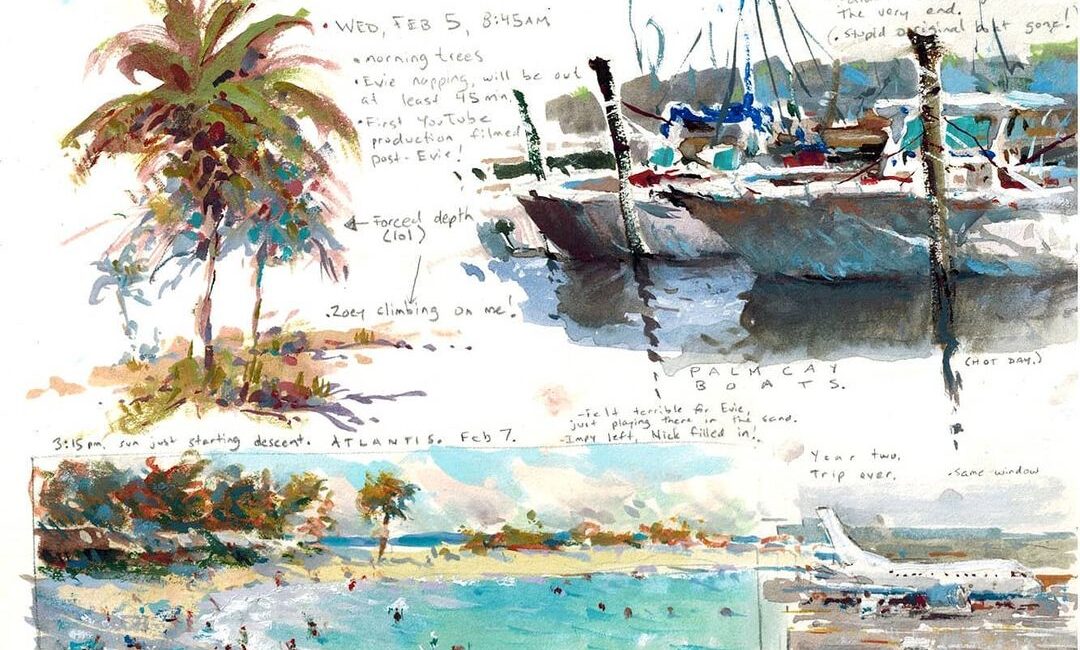 • WED, FEB 5, 8:45AM
• morning trees
• Evie napping, will be out
at least 45 min.
• First YouTube
production filmed
post-Evie!
Forced depth
(lol)
• Zoey climbing on me!
The very end.
(• Stupid original boat gone!)
(HOT DAY.)
PALM CAY
BOATS.
- Felt terrible for Evie,
just playing there in the sand.
- Impy left, Nick filled in!
3:15pm. sun just starting descent. ATLANTIS. Feb 7.
Year two,
Trip over.
• Same window